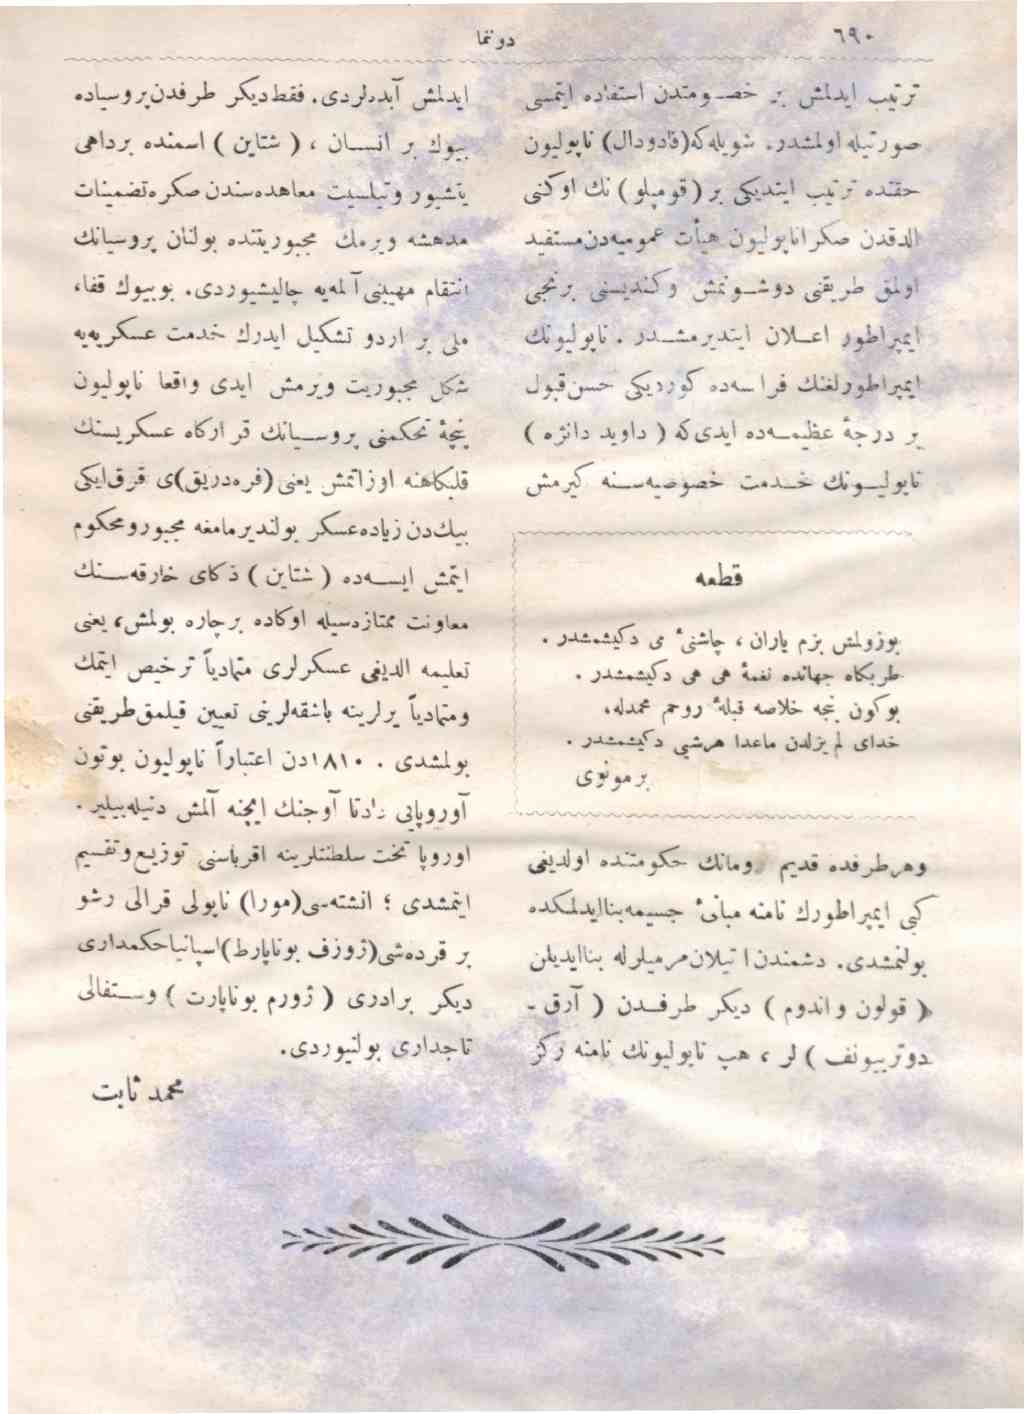 ٦٩٠
دوننما
ترتیب ایدلمش بر خصومتدن استفاده ایتمسی
صورتیله اولمشدر. شویله‌که (قادودال) ناپولیون
حقنده ترتیب ایتدیکی بر (قومپلو) نك اوکنی
الدقدن صکرا ناپولیون هیأت عمومیه‌دن مستفید
اولمق طریقنی دوشونمش و کندیسنی برنجی
ایمپراطور اعلان ایتدیرمشدر . ناپولیونك
ایمپراطورلغنك فرانسه‌ده کوردیکی حسن قبول
بر درجهٔ عظیمه‌ده ایدی‌که ( داوید دانژه )
ناپولیونك خدمت خصوصیه‌سنه کیرمش
قطعه
بوزولمش بزم یاران ، چاشنیٔ می دکیشمشدر .
طربکاه جهانده نغمهٔ هی هی دکیشمشدر .
بوکون نیجه خلاصه قبلهٔ روحم محمدله،
خدای لم یزلدن ماعدا هرشیی دکیشمشدر .
برمونوی
وهر طرفده قدیم رومانك حکومتنده اولدیغی
کبی ایمپراطورك نامنه مبانیٔ جسیمه بنا ایدلمکده
بولنمشدی. دشمندن اتیلان مرمیلرله بنا ایدیلن
( قولون واندوم ) دیکر طرفدن ( آرق -
دوتریونف ) لر ، هپ ناپولیونك نامنه رکز
ایدلمش آبده‌لردی. فقط دیکر طرفدن پروسیاده
بیوك بر انسان ، ( شتاین ) اسمنده برداهی
یتشیور و تیلسیت معاهده‌سندن صکره تضمینات
مدهشه ویرمك مجبوریتنده بولنان پروسیانك
انتقام مهیبنی آلمه‌یه چالیشیوردی. بو بیوك قفا،
ملی بر اردو تشکیل ایدرك خدمت عسکریه‌یه
شکل مجبوریت ویرمش ایدی واقعا ناپولیون
پنجهٔ تحکمنی پروسیانك قرارکاه عسکریسنك
قلبکاهنه اوزاتمش یعنی (فره‌دریق)ی قرق ایکی
بیك‌دن زیاده عسکر بولندیرمامغه مجبور و محکوم
ایتمش ایسه‌ده ( شتاین ) ذکای خارقه‌سنك
معاونت ممتازه‌سیله اوکاده برچاره بولمش، یعنی
تعلیمه الدیغی عسکرلری متمادیاً ترخیص ایتمك
ومتمادیاً یرلرینه باشقه‌لرینی تعیین قیلمق طریقنی
بولمشدی . ١٨١٠دن اعتباراً ناپولیون بوتون
آوروپایی عادتا آوجنك ایچنه آلمش دنیله‌بیلیر .
اوروپا تخت سلطنتلرینه اقرباسنی توزیع و تقسیم
ایتمشدی ؛ انشته‌سی (مورا) ناپولی قرالی رشو
بر قرده‌شی (ژوزف بوناپارط) اسپانیا حکمداری
دیکر برادری ( ژوروم بوناپارت ) وستفالی
تاجداری بولنیوردی.
محمد ثابت